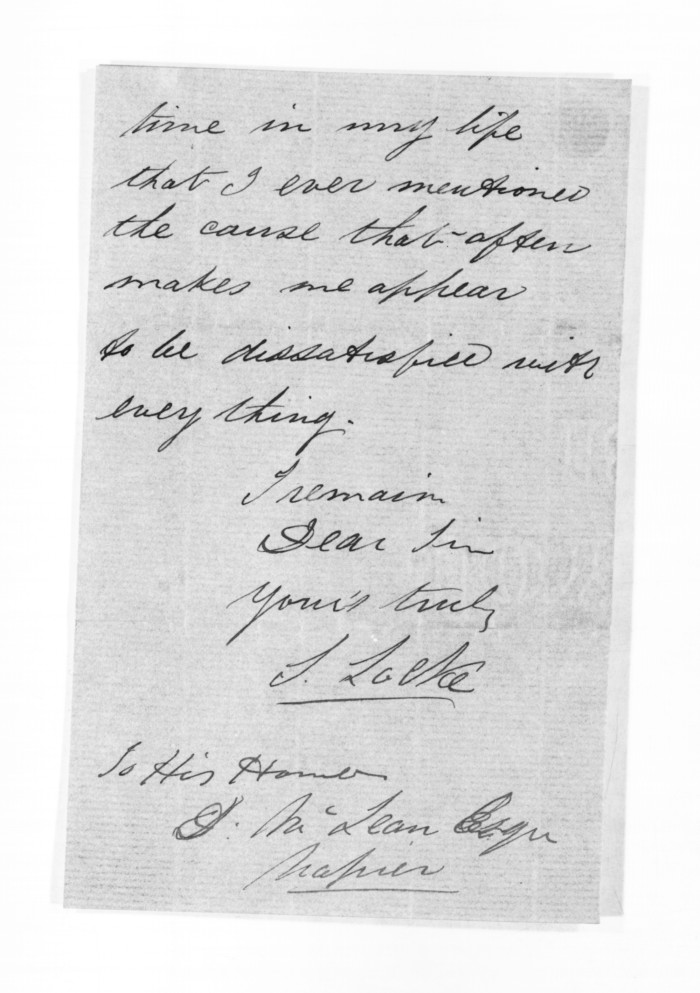 time in my life
that I ever mentioned
the cause that often
makes me appear
to be dissatisfied with
every thing.
I remain
Dear Sir
Your's truly
S. Locke
To His Honor
D. McLean Esqr
Napier